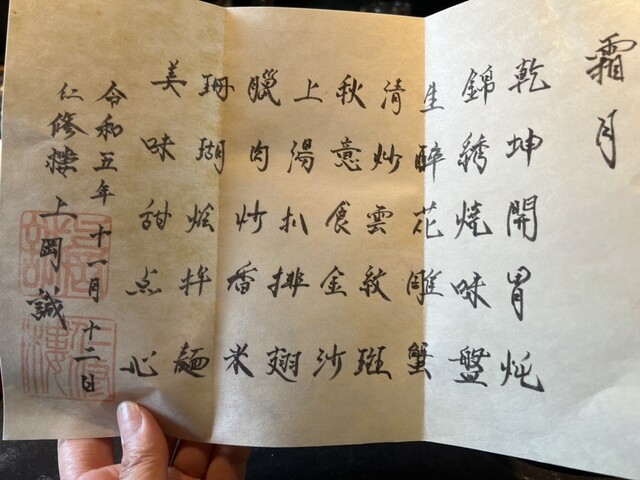 霜月
乾坤開胃炖
錦綉焼味盤
生醉花雕蟹
清炒雲紋斑
秋意食金沙
上湯扒排翅
臘肉炒香米
珊瑚烩拌麺
美味甜点心
令和五年十一月十二日
仁修樓上岡誠